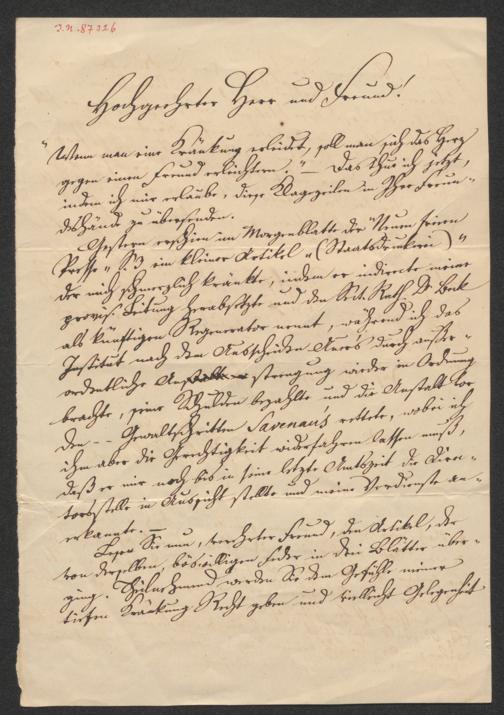 I.N. 87326
Hochgeehrter Herr und Freund!
"Wenn man eine Kränkung erleidet, soll man sich das Herz
gegen einen Freund erleichtern." — Das thue ich jetzt,
indem ich mir erlaube, diese Klagezeilen in Ihre Freun-
deshände zu übersenden.
Gestern erschien im Morgenblatte der "Neuen freien
Presse" ein kleiner Artikel "(Staatsdruckerei)"
der mich schmerzlich kränkte, indem er indirecte meine
provis. Leitung herabsetzte und den Rath Dr Beck
als künftigen Regenerator nennt, während ich das
Institut nach dem Ausscheiden Auer's durch außer-
ordentliche Anstrengung wieder in Ordnung
brachte, seine Schulden bezahlte und die Anstalt vor
den -- Gewaltschritten Savenau's rettete, wobei ich
ihm aber die Gerechtigkeit widerfahren lassen muß,
daß er mir noch bis in seine letzte Amtszeit die Direc-
torsstelle in Aussicht stellte und meine Verdienste an-
erkannte. —
Lesen Sie nun, verehrter Freund, den Artikel, der
von derselben, böswilligen Feder in die Blätter über-
ging. Theilnehmend werden Sie dem Gefühle meiner
tiefen Kränkung Recht geben und vielleicht Gelegenheit